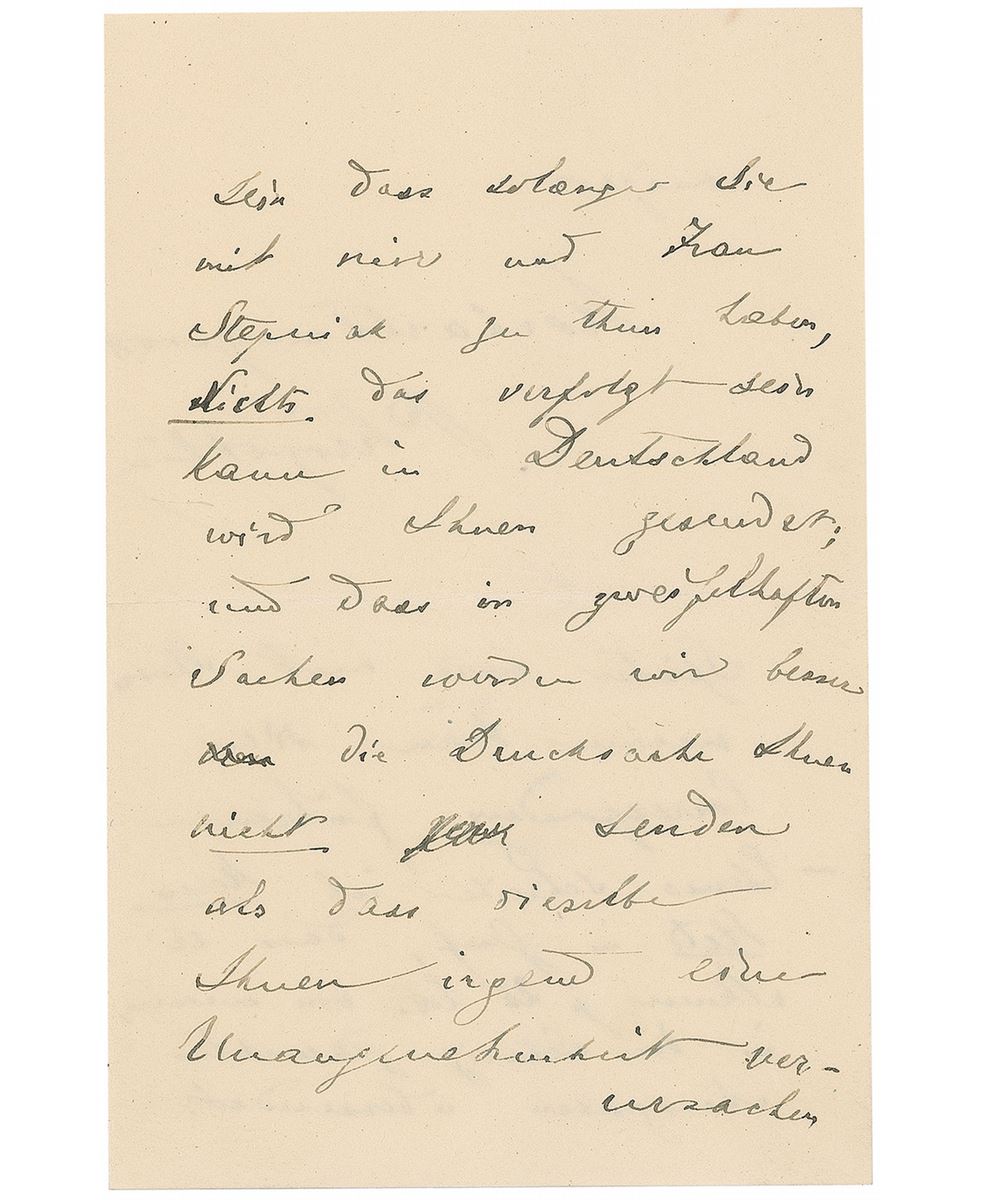 sein dass solange Sie
mit mir und Frau
Stepniak zu thun haben,
Nichts das verfolgt sein
kann in Deutschland
wird Ihnen gesendet;
und dass in zweifelhaften
Sachen werden wir besser
die Drucksache Ihnen
nicht senden
als dass dieselbe
Ihnen irgend eine
Unangenehmheit ver-
ursachen